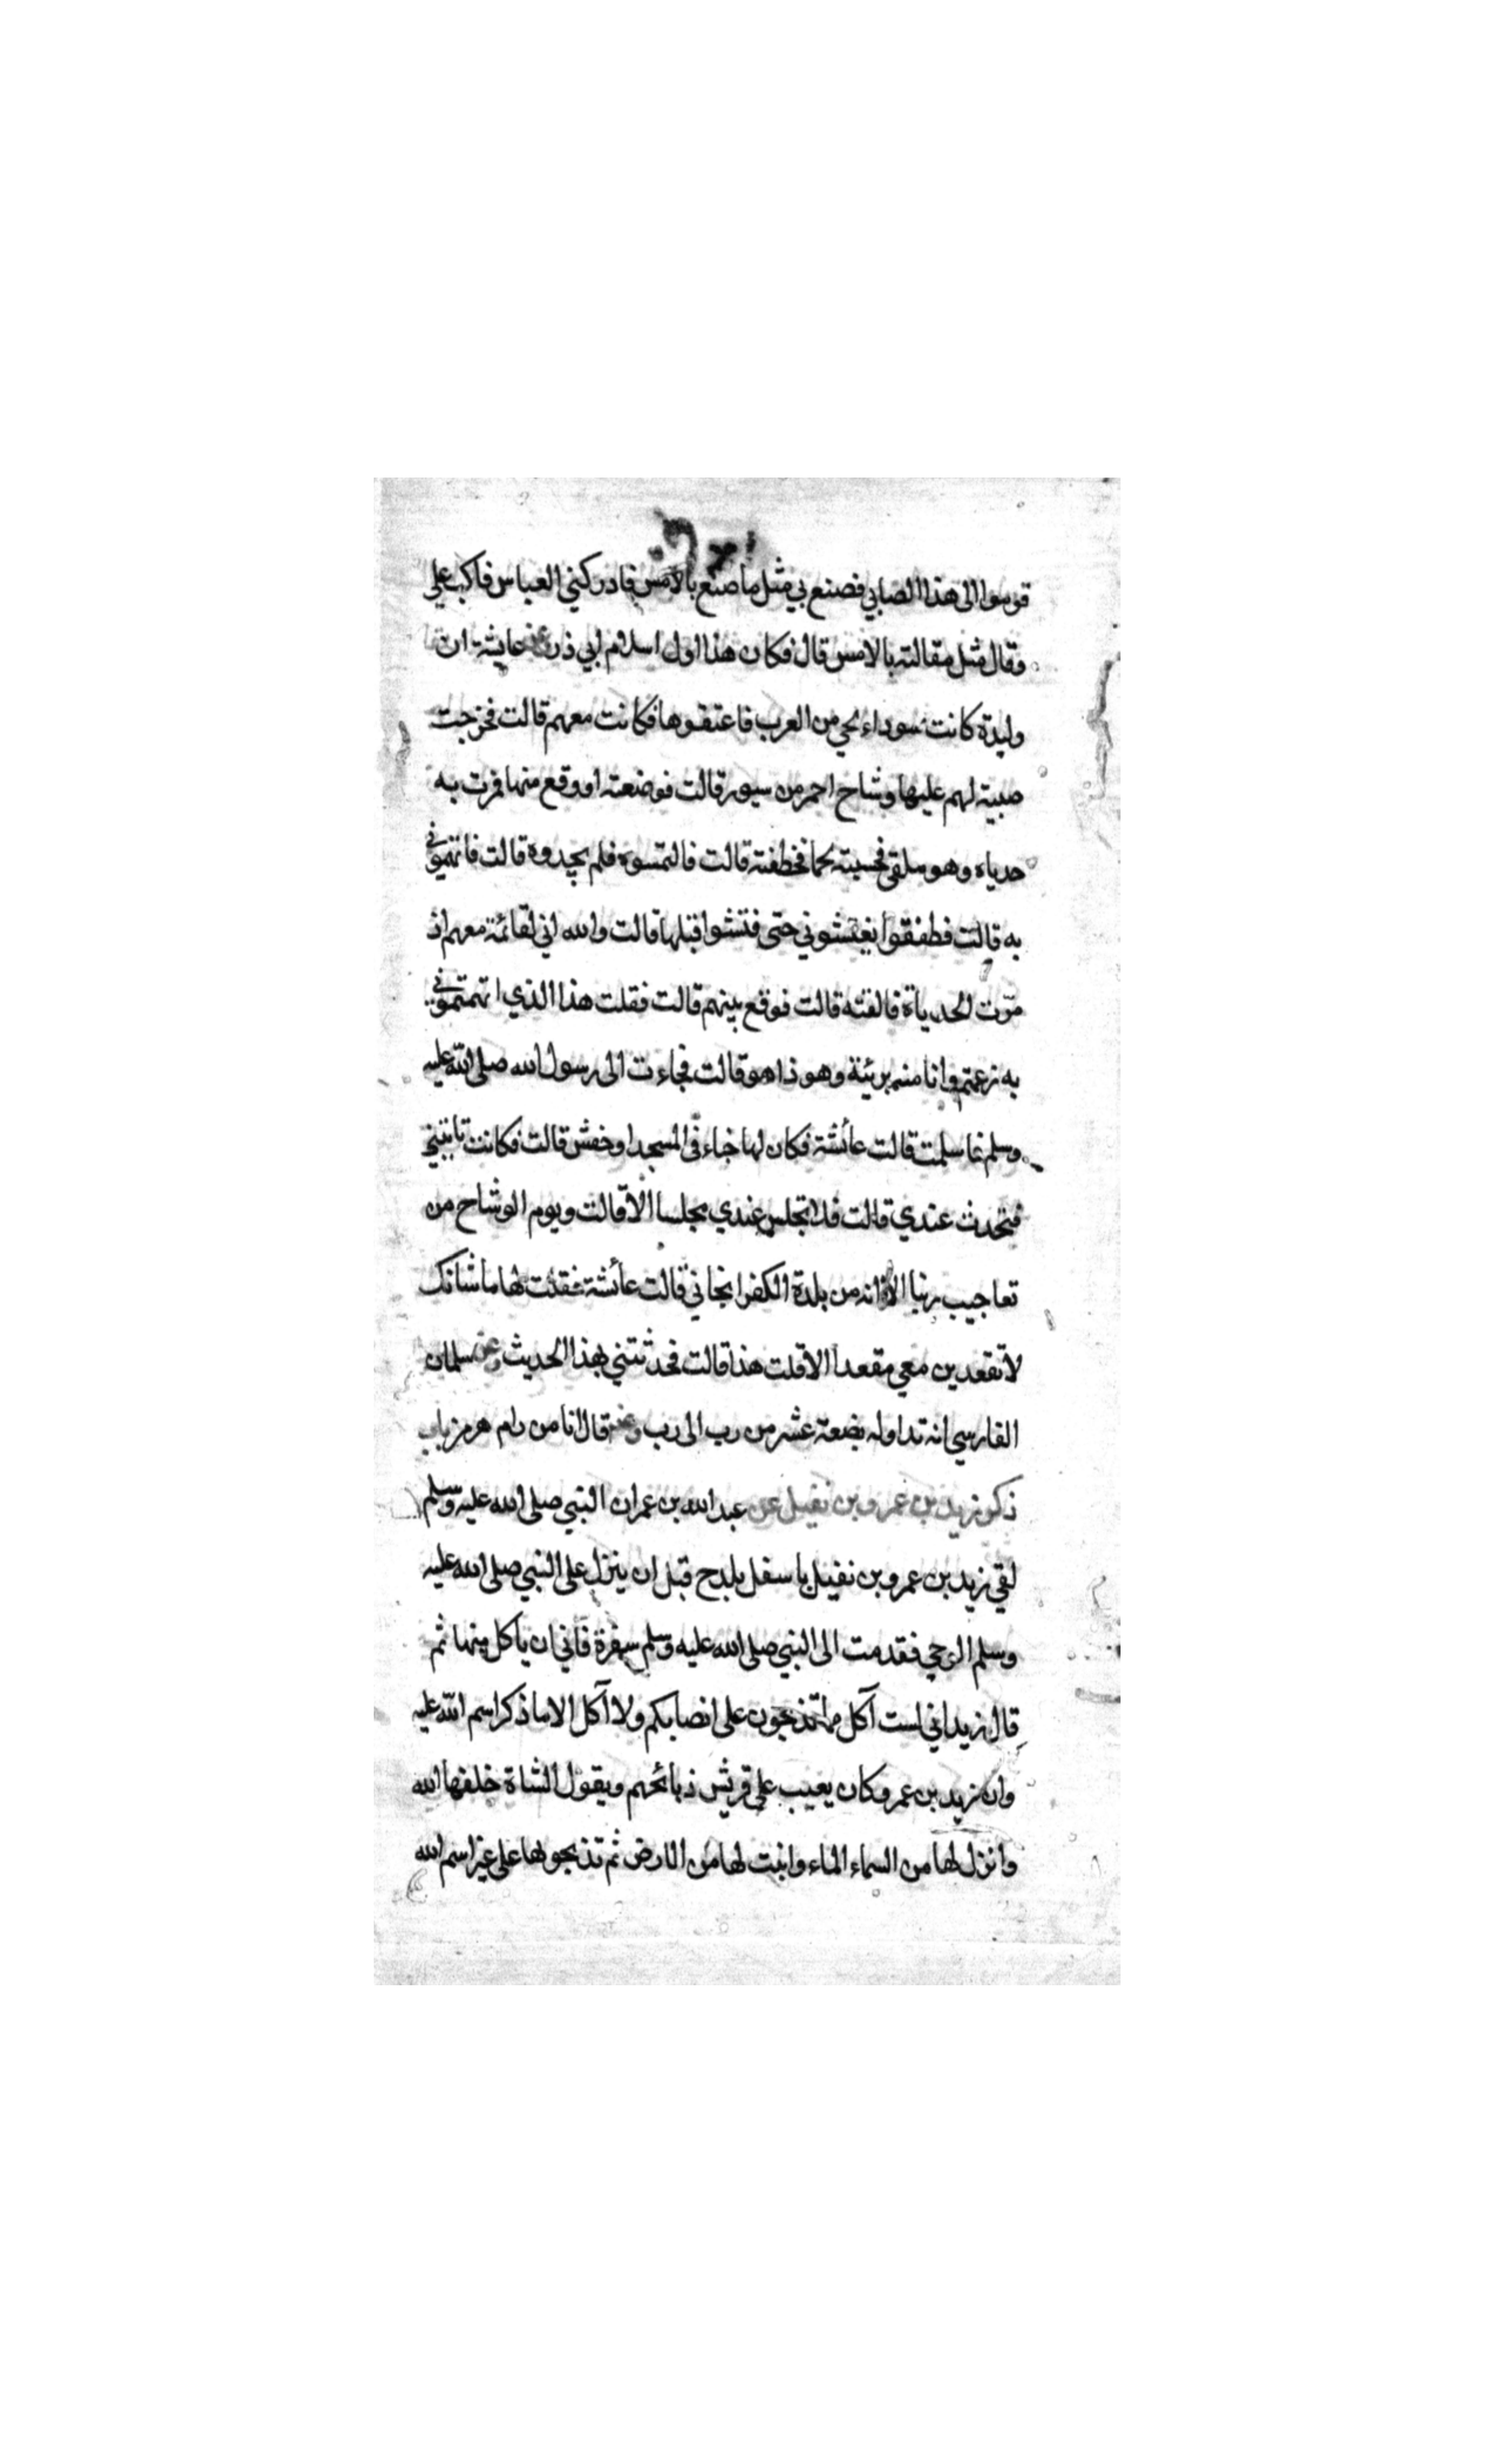 قوموا الى هذا الصابي فصنع بي مثل ما صنع بالامس فادركني العباس فاكب علي
وقال مثل مقالته بالامس قال فكان هذا اول اسلام ابي ذر عن عايشة ان
وليدة كانت سوداء لحي من العرب فاعتقوها فكانت معهم قالت فخرجت
صبية لهم عليها وشاح احمر من سيور قالت فوضعته او وقع منها فمرت به
حدياه وهو ملقى فحسبته لحما فخطفته قالت فالتمسوه فلم يجدوه قالت فاتهموني
به قالت فطفقوا يفتشوني حتى فتشوا قبلها قالت والله اني لقائمة معهم اذ
مرت الحدياة فالقته قالت فوقع بينهم قالت فقلت هذا الذي اتهمتموني
به زعمتم وانا منه بريئة وهو ذا هو قالت فجاءت الى رسول الله صلى الله عليه
وسلم فاسلمت قالت عائشة فكان لها خباء في المسجد او حفش قالت فكانت تاتيني
فتحدث عندي قالت فلا تجلس عندي مجلسا الا قالت ويوم الوشاح من
تعاجيب ربنا الا انه من بلدة الكفر انجاني قالت عائشة فقلت لها ما شانك
لا تقعدين معي مقعدا الا قلت هذا قالت فحدثتني بهذا الحديث وعن سلمان
الفارسي انه تداوله بضعة عشر من رب الى رب وعنه قال انا من رام هرمز باب
ذكر زيد بن عمرو بن نفيل عن عبد الله بن عمر ان النبي صلى الله عليه وسلم
لقي زيد بن عمرو بن نفيل باسفل بلدح قبل ان ينزل على النبي صلى الله عليه
وسلم الوحي فقدمت الى النبي صلى الله عليه وسلم سفرة فابي ان ياكل منها ثم
قال زيد اني لست آكل مما تذبحون على انصابكم ولا آكل الا ما ذكر اسم الله عليه
وان زيد بن عمرو كان يعيب على قريش ذبائحهم ويقول الشاة خلقها الله
وانزل لها من السماء الماء وانبت لها من الارض ثم تذبحونها على غير اسم الله